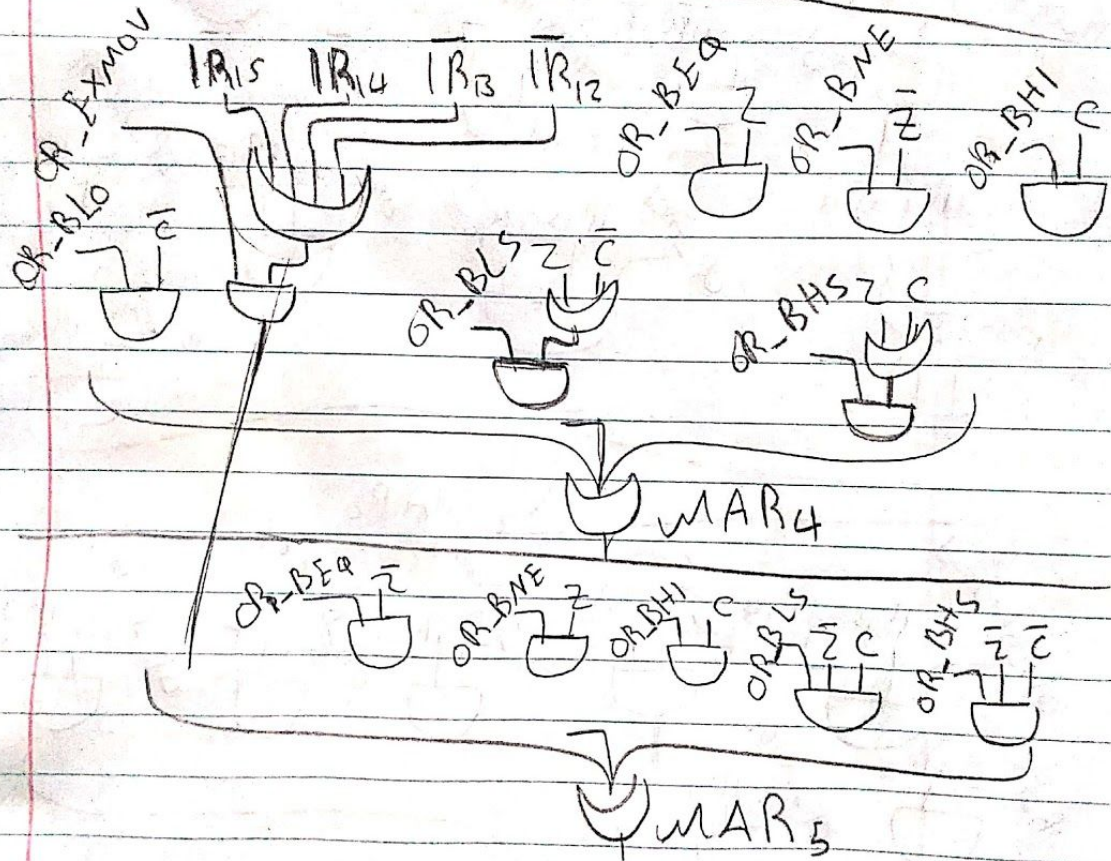 OR_EXMOV I̅R̅15 I̅R̅14 I̅R̅13 I̅R̅12 OR_BEQ Z OR_BNE Z̅ OR_BHI C
OR_BLO C̅ OR_BLS Z C̅ OR_BHS Z C
μMAR4
OR_BEQ Z̅ OR_BNE Z OR_BHI C OR_BLS Z̅ C OR_BHS Z̅ C̅
μMAR5